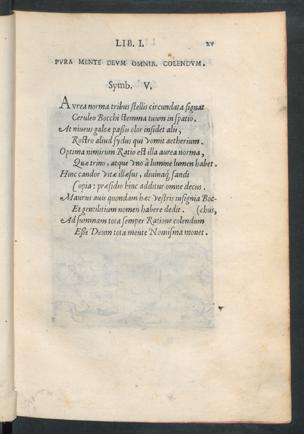 LIB. I. xv
PVRA MENTE DEVM OMNIB. COLENDVM.
Symb. V.
Aurea norma tribus stellis circundata signat
Ceruleo Bocchi stemma tuum in spatio.
At niueus galeæ passis olor insidet alis,
Rostro aliud sydus qui vomit aetherium.
Optima nimirum Ratio est illa aurea norma,
Quæ trino, atque vno à lumine lumen habet.
Hinc candor vitæ illæsus, diuinaq; fandi
Copia: præsidio huic additur omne decus.
Maurus aui quondam hæc vestris insignia Boc-
Et gentilitium nomen habere dedit. (chus,
Ad summam tota semper Ratione colendum
Esse Deum tota mente Nomisma monet.